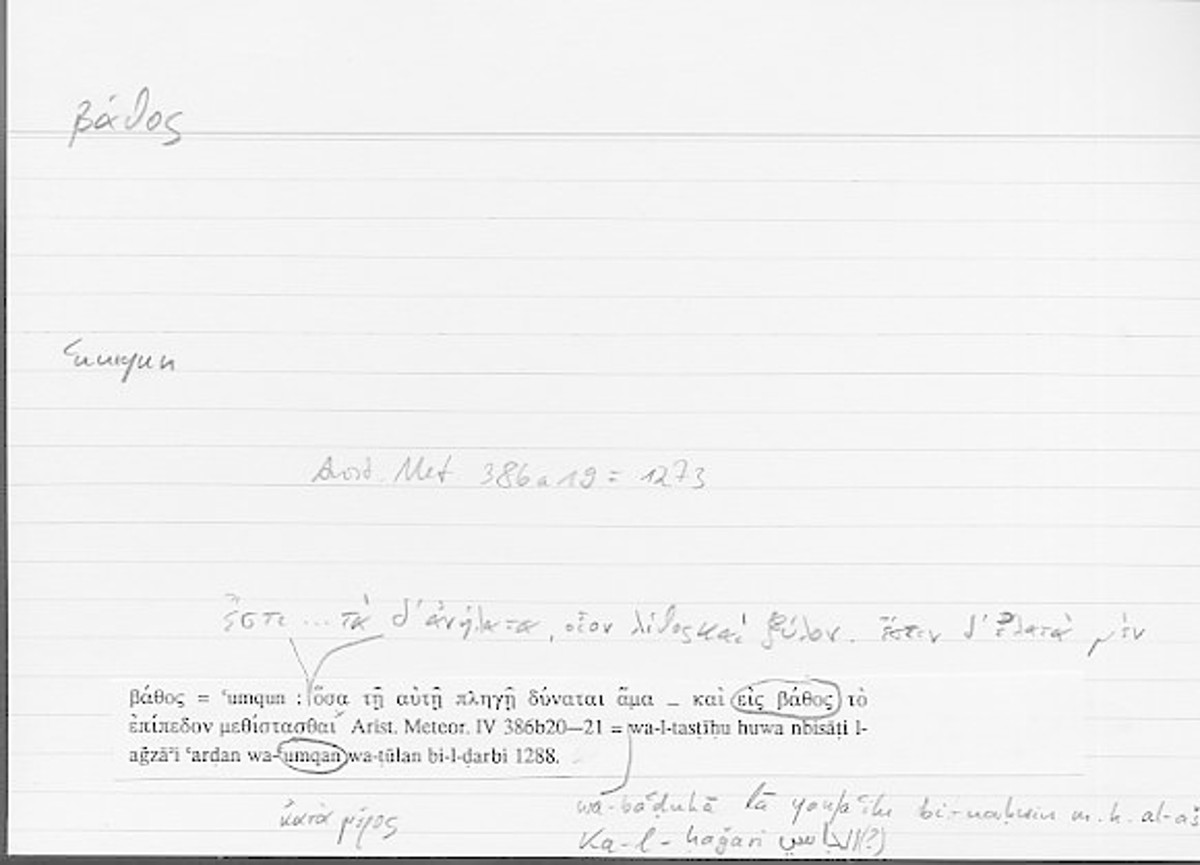 βάθος
ʿumqun
Arist. Met. 386a19 = 1273
ἔστι ... τὰ δ' ἀνήλατα, οἷον λίθος καὶ ξύλον. ἔστιν δ' ἐλατὰ μὲν
βάθος = ʿumqun : ὅσα τῇ αὐτῇ πληγῇ δύναται ἅμα _ καὶ εἰς βάθος τὸ
ἐπίπεδον μεθίστασθαι Arist. Meteor. IV 386b20—21 = wa-l-tasṭīḥu huwa nbisāṭi l-
aǧzāʾi ʿarḍan wa-ʿumqan wa-ṭūlan bi-l-ḍarbi 1288.
wa-baʿḍuhā lā bi-
κατὰ μέρος
ka-l-ḥaǧari (?)